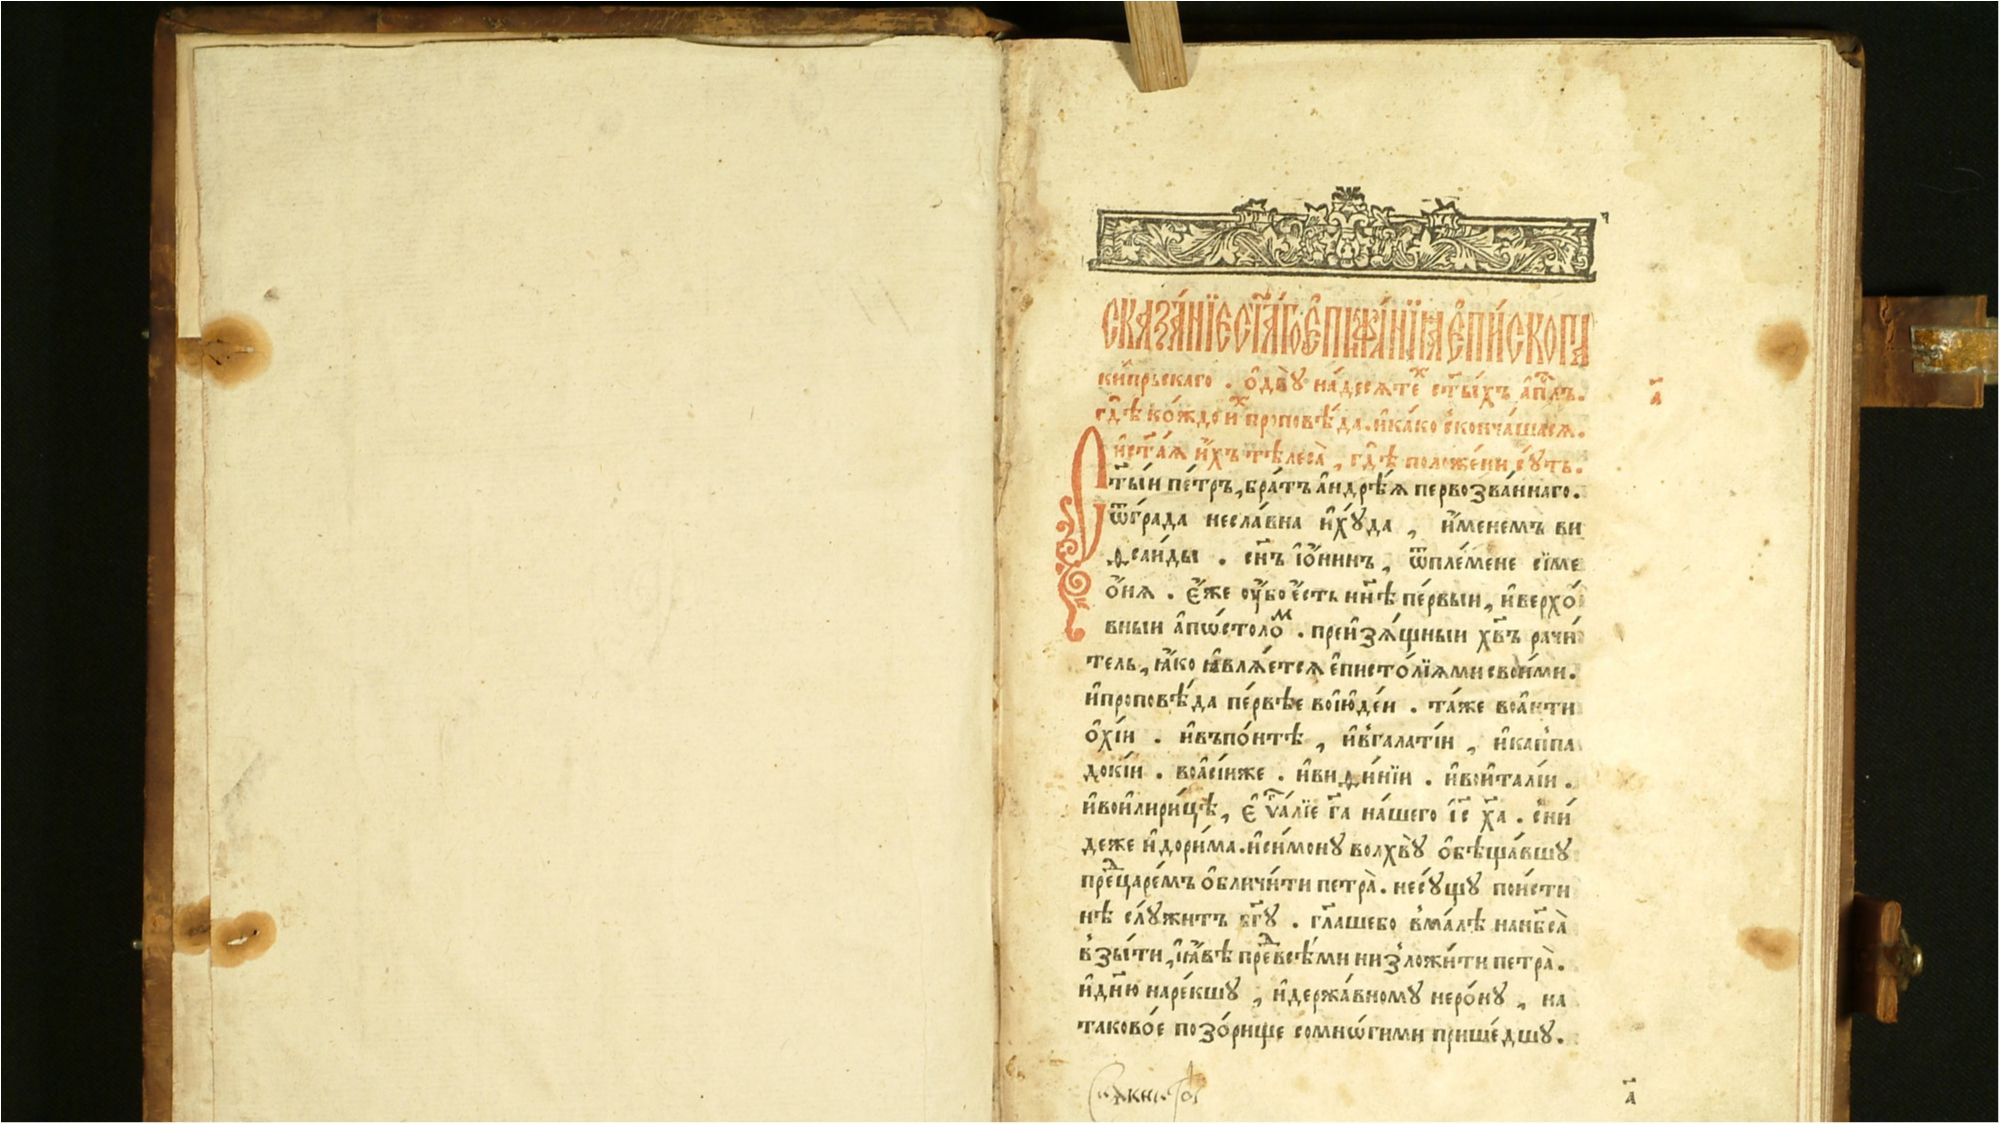 СКАЗА́НЇЕ СТ҃А́ГѠ Є҆ПИФА́НЇА Є҆ПИ́СКОПА
ки́прьскаго . ѻ҆двꙋ̀ на́десѧтеⷯ ст҃ы́хъ а҆пⷭ҇лъ.
гдѣ̀ ко́ждо и҆ⷯ проповѣ́да. и҆ка́ко скончашасѧ.
и҆ст҃а́ѧ и҆́хъ тѣлеса̀ , гдѣ̀ положе́ни сꙋ́ть.
а҃
Ст҃ы́и пе́тръ, бра́тъ а҆ндрѣ́ѧ первозва́ннаго.
ѿгра́да несла́вна и҆хꙋ́да , и҆́менемъ ви
ѳсаи́ды . сн҃ъ і҆ѻ́нинъ , ѿпле́мене сїме
ѻ́нѧ . є҆́же ᲂу҆́бо є҆́сть нн҃ѣ пе́рвыи, и҆верхо́
вныи а҆пѡ́столоⷨ . преи҆зѧ́щныи хв҃ъ рачи́
тель, ꙗ҆́ко ꙗ҆влѧ́етсѧ є҆писто́лїѧми свои́ми.
и҆проповѣ́да пе́рвѣе воі҆ю҆де́и . та́же воа҆нти
ѻ҆хі́и . и҆въпо́нтѣ , и҆вгалаті́и , и҆каппа
докі́и . воа҆сі́иже . и҆виѳи́нїи . и҆вои҆талі́и .
и҆вои҆лири́цѣ , є҆ѵⷢ҇а́лїе гд҃а на́шего і҆с҃ х҃а . сни́
деже и҆дори́ма. и҆си́монꙋ волхвꙋ̀ ѻ҆бѣща́вшꙋ
преⷣцаре́мъ ѻ҆бличи́ти петра̀. несꙋ́щꙋ пои́сти
нѣ слꙋ́житъ бг҃ꙋ . гл҃ашебо вма́лѣ нанб҃са̀
взы́ти , і҆ꙗ҆́вѣ преⷣвсѣ́ми низложи́ти петра̀.
и҆дн҃ю наре́кшꙋ , и҆держа́вномꙋ неро́нꙋ , на
таково́е позо́рище сомнѡ́гими прише́дшꙋ.
а҃